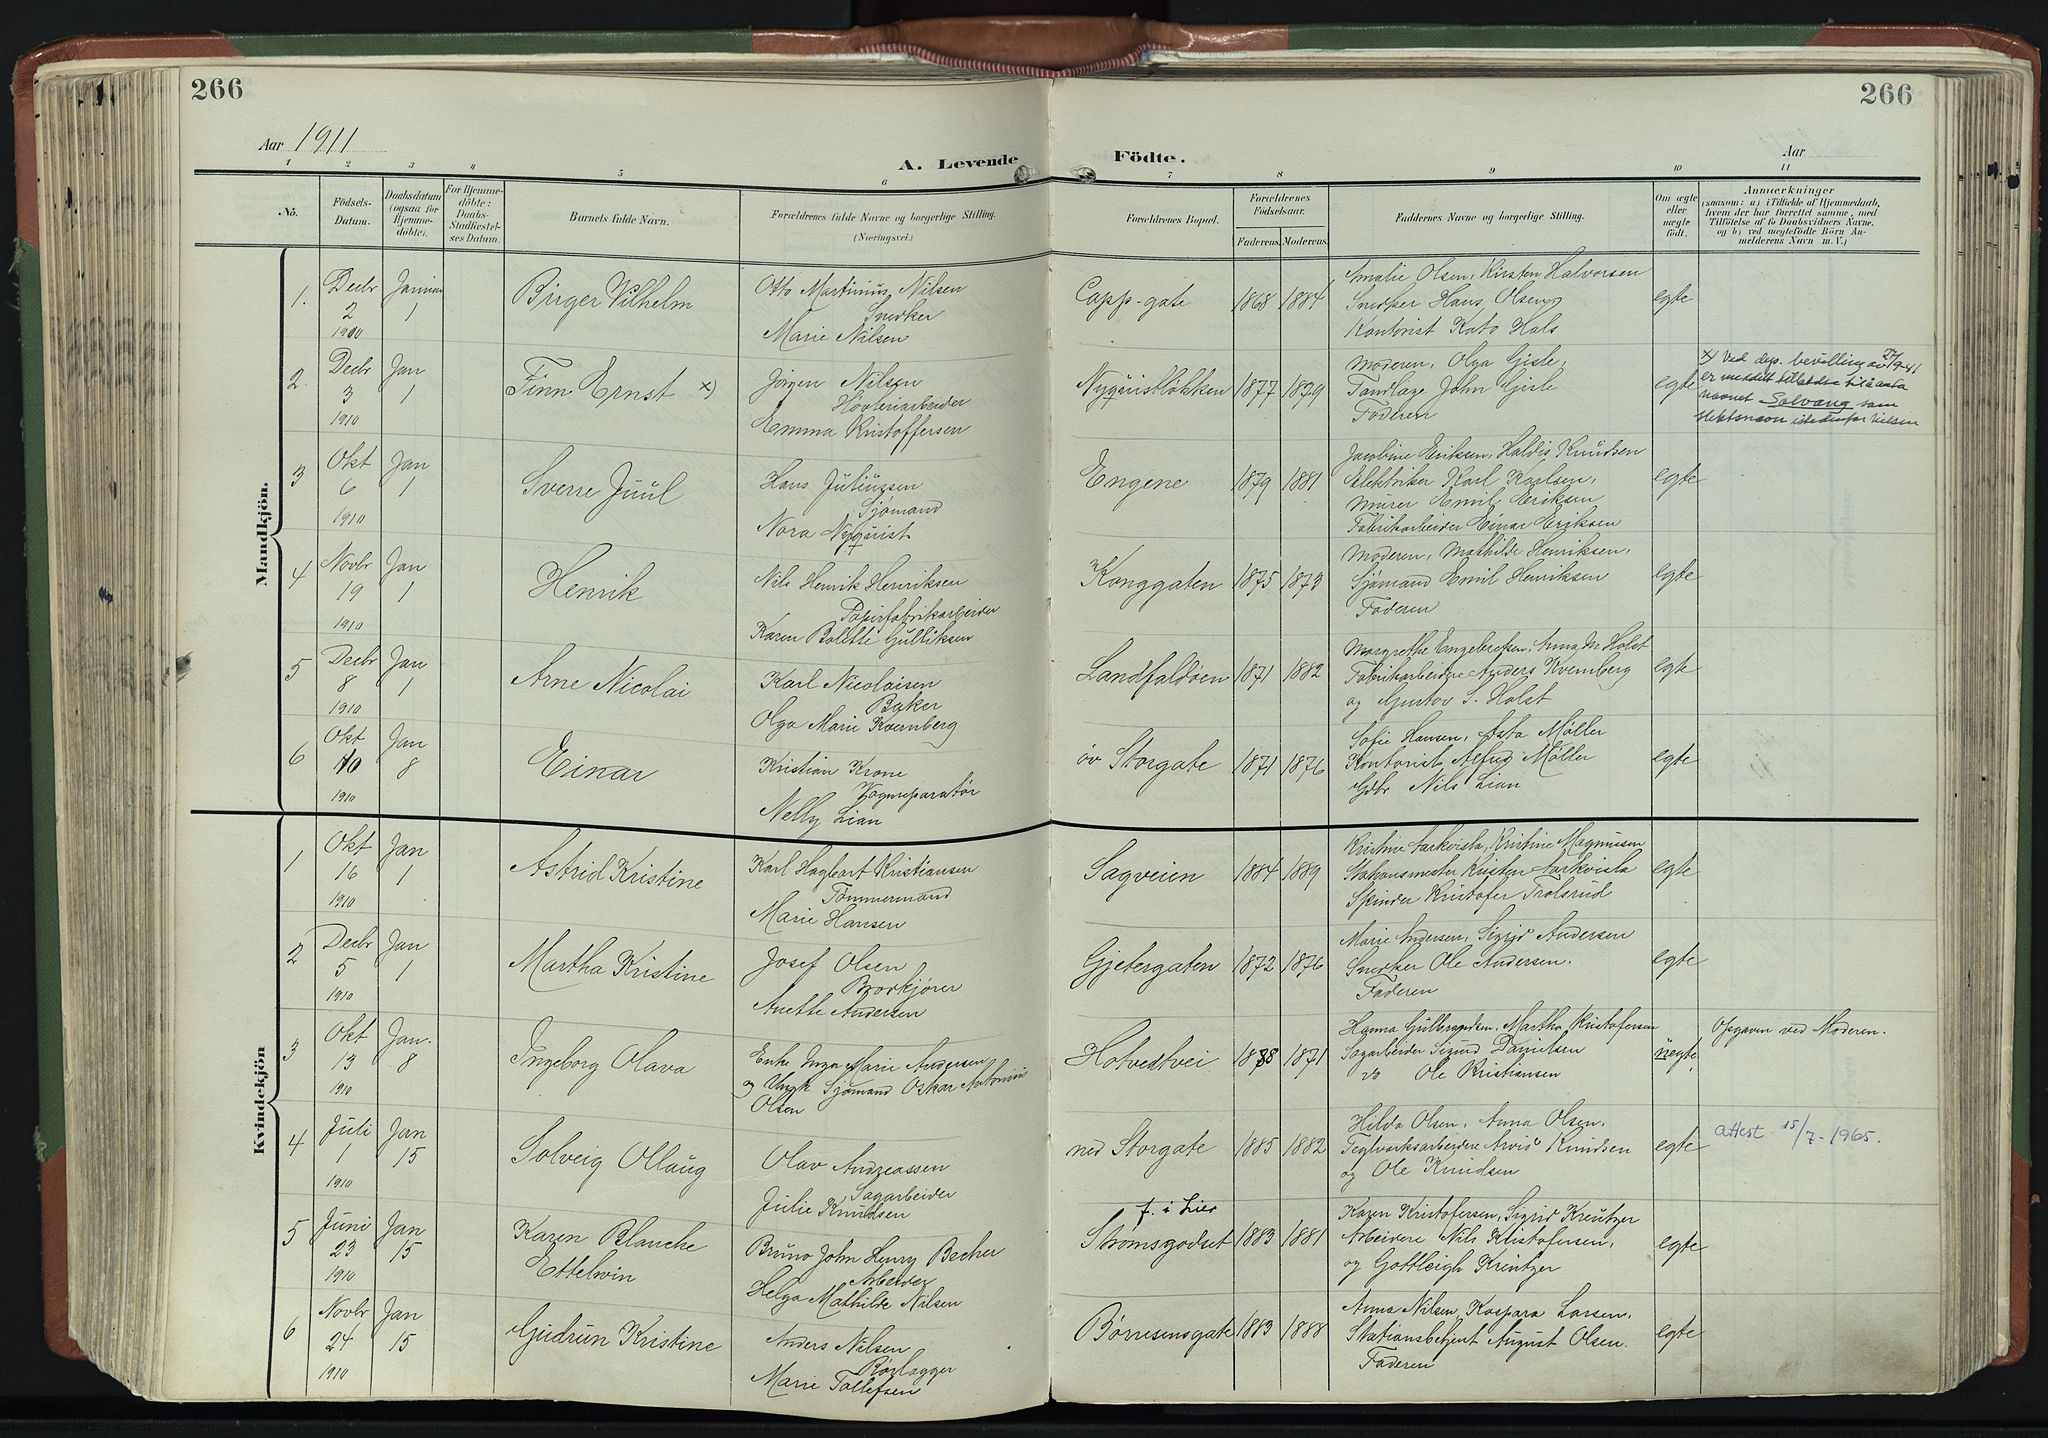 266
266
Aar 1911
A. Levende Födte.
Aar
1 2 3 4 5 6 7 8 9 10 11
No.
Födsels-Datum.
Daabsdatum (ogsaa for Hjemmedöbte).
For Hjemmedöbte: Daabs-Stadfæstelses Datum.
Barnets fulde Navn.
Forældrenes fulde Navne og borgerlige Stilling.
(Næringsvei.)
Forældrenes Bopæl.
Forældrenes Födselsaar.
Faderens. Moderens.
Faddernes Navne og borgerlige Stilling.
Om ægte eller uægte födt.
Anmærkninger
(saasom: a) i Tilfælde af Hjemmedaab, hvem der har forrettet samme, med Tilföielse af to Daabsvidners Navne, og b) ved uægtefödte Börn Anmelderens Navn m. V.)
Mandkjön.
1. Decbr 2 1910
Januar 1
Birger Vilhelm
Otto Martinius Nilsen
Snedker
Marie Nilsen
Capp. gate
1868 1884
Amalie Olsen, Kirsten Halvorsen
Snedker Hans Olsen og
Kontorist Kato Hals
egte
2. Decbr 3 1910
Jan 1
Finn Ernst x)
Jörgen Nilsen
Høvleriarbeider
Emma Kristoffersen
Nyquistløkken
1877 1879
Moderen, Olga Gisle,
Tandlæge John Gisle
Faderen
egte
x) Ved dep. bevilling av 27/9-41
er meddelt tilladelse til å anta
navnet Solvang som
slektsnavn istedenfor Nilsen
3 Okt 6 1910
Jan 1
Sverre Juul
Hans Juliussen
Sjømand
Nora Nyquist
Engene
1879 1881
Jacobine Eriksen, Haldis Knudsen
Elektriker Karl Karlsen,
Murer Emil Eriksen
Fabrikarbeider Einar Eriksen
egte
4 Novbr 19 1910
Jan 1
Henrik
Nils Henrik Henriksen
Papirfabrikarbeider
Karen Bolette Gulliksen
Konggaten
1875 1873
Moderen, Mathilde Henriksen,
Sjømand Emil Henriksen
Faderen
egte
5 Decbr 8 1910
Jan 1
Arne Nicolai
Karl Nicolaisen
Baker
Olga Marie Kvernberg
Landfaldøen
1871 1882
Margrethe Engebretsen, Anna M Holst
Fabrikarbeidere Anders Kvernberg
og Gustav S. Holst
egte
6 Okt 10 1910
Jan 8
Einar
Kristian Krone
Vognreparatør
Nelly Lian
öv Storgate
1871 1876
Sofie Hansen, Asta Møller
Kontorist Møller
Gdbr Nils Lian
egte
Kvindekjön
1 Okt 16 1910
Jan 1
Astrid Kristine
Karl Hagbart Kristiansen
Tømmermand
Marie Hansen
Sagveien
1884 1889
Kristine Kristine Magnussen
Stationsmester Kristen
Spinder Kristofer Trolsrud
egte
2 Decbr 5 1910
Jan 1
Martha Kristine
Josef Olsen
Bordkjører
Anette Andersen
Gjetergaten
1872 1876
Marie Andersen, Sigrid Andersen
Snedker Ole Andersen.
Faderen
egte
3 Okt 13 1910
Jan. 8
Ingeborg Olava
Enke Inga Marie Andersen
og Ungk Sjømand Oskar Antonius
Olsen
Hotvedtvei
1878 1871
Hanna Gulbrandsen, Martha Kristofersen
Sagarbeider Sigurd Danielsen
do Ole Kristiansen
uegte,
Opgaven ved Moderen.
4 Juli 1 1910
Jan 15
Solveig Ollaug
Olav Andreassen
Sagarbeider
Julie Knudsen
ned Storgate
1885 1882
Hilda Olsen, Anna Olsen,
Teglverksarbeidere Arvid Knudsen
og Ole Knudsen
egte
attest 15/7-1965.
5 Juni 23 1910
Jan 15
Karen Blanche
Ettelwin
Bruno John Henry Becher
Arbeider
Helga Mathilde Nilsen
f. i Lier
Strømsgodset
1883 1881
Karen Kristofersen, Sigrid Kreutzer
Arbeidere Nils Kristofersen,
og Gottleigh Kreutzer
egte
6 Novbr 24 1910
Jan 15
Gudrun Kristine
Anders Nilsen
Rørlægger
Marie Tollefsen
Børresensgate
1883 1888
Anna Nilsen, Kaspara Larsen,
Stationsbetjent August Olsen.
Faderen
egte